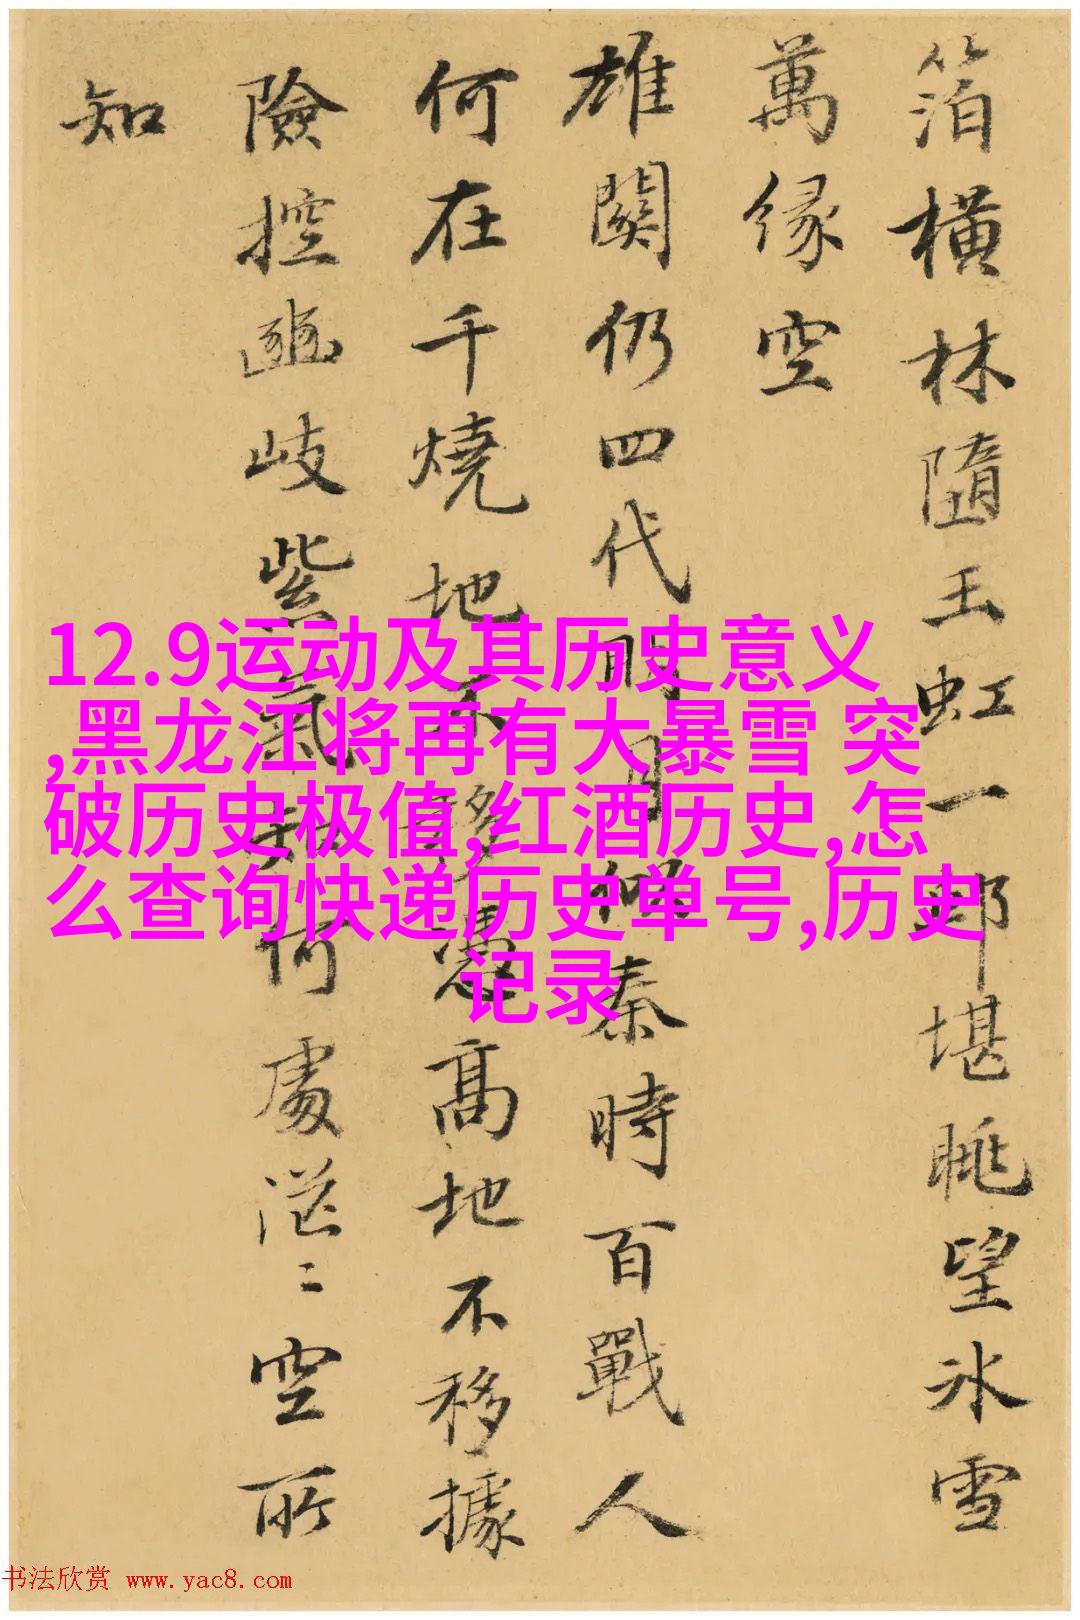 箔橫林隨玉虹一郭堪眺望氷雪
萬緣空
雄関仍四代明月似秦時百戰人
何在千燒地不移憑高地不移據
險控豳岐紫氣知何處茫〻空所
知
12.9运动及其历史意义
,黑龙江将再有大暴雪 突
破历史极值,红酒历史,怎
么查询快递历史单号,历史
记录
书法欣赏 www.yac8.com